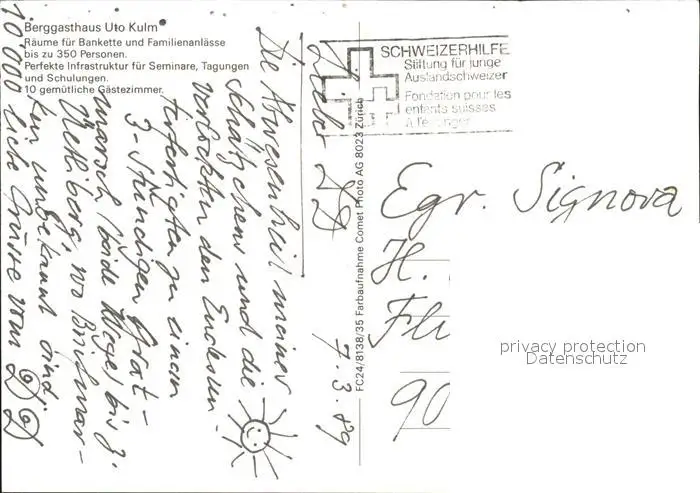 Berggasthaus Uto Kulm
Räume für Bankette und Familienanlässe
bis zu 350 Personen.
Perfekte Infrastruktur für Seminare, Tagungen
und Schulungen.
10 gemütliche Gästezimmer.
SCHWEIZERHILFE
Stiftung für junge
Auslandschweizer
Fondation pour les
enfants suisses
à l'étranger
FC24/8138/35 Farbaufnahme Comet Photo AG 8023 Zürich
7.3.89
Die Abwesenheit meiner
Schätzchens und die
verlockten den
zu einem
3-stündigen
marsch (beide Wege) bis z.
Uetliberg, wo
ten unbekannt sind.
10'000 liebe Grüsse vom
Egr. Signora
H.
Fli
90
privacy protection
Datenschutz